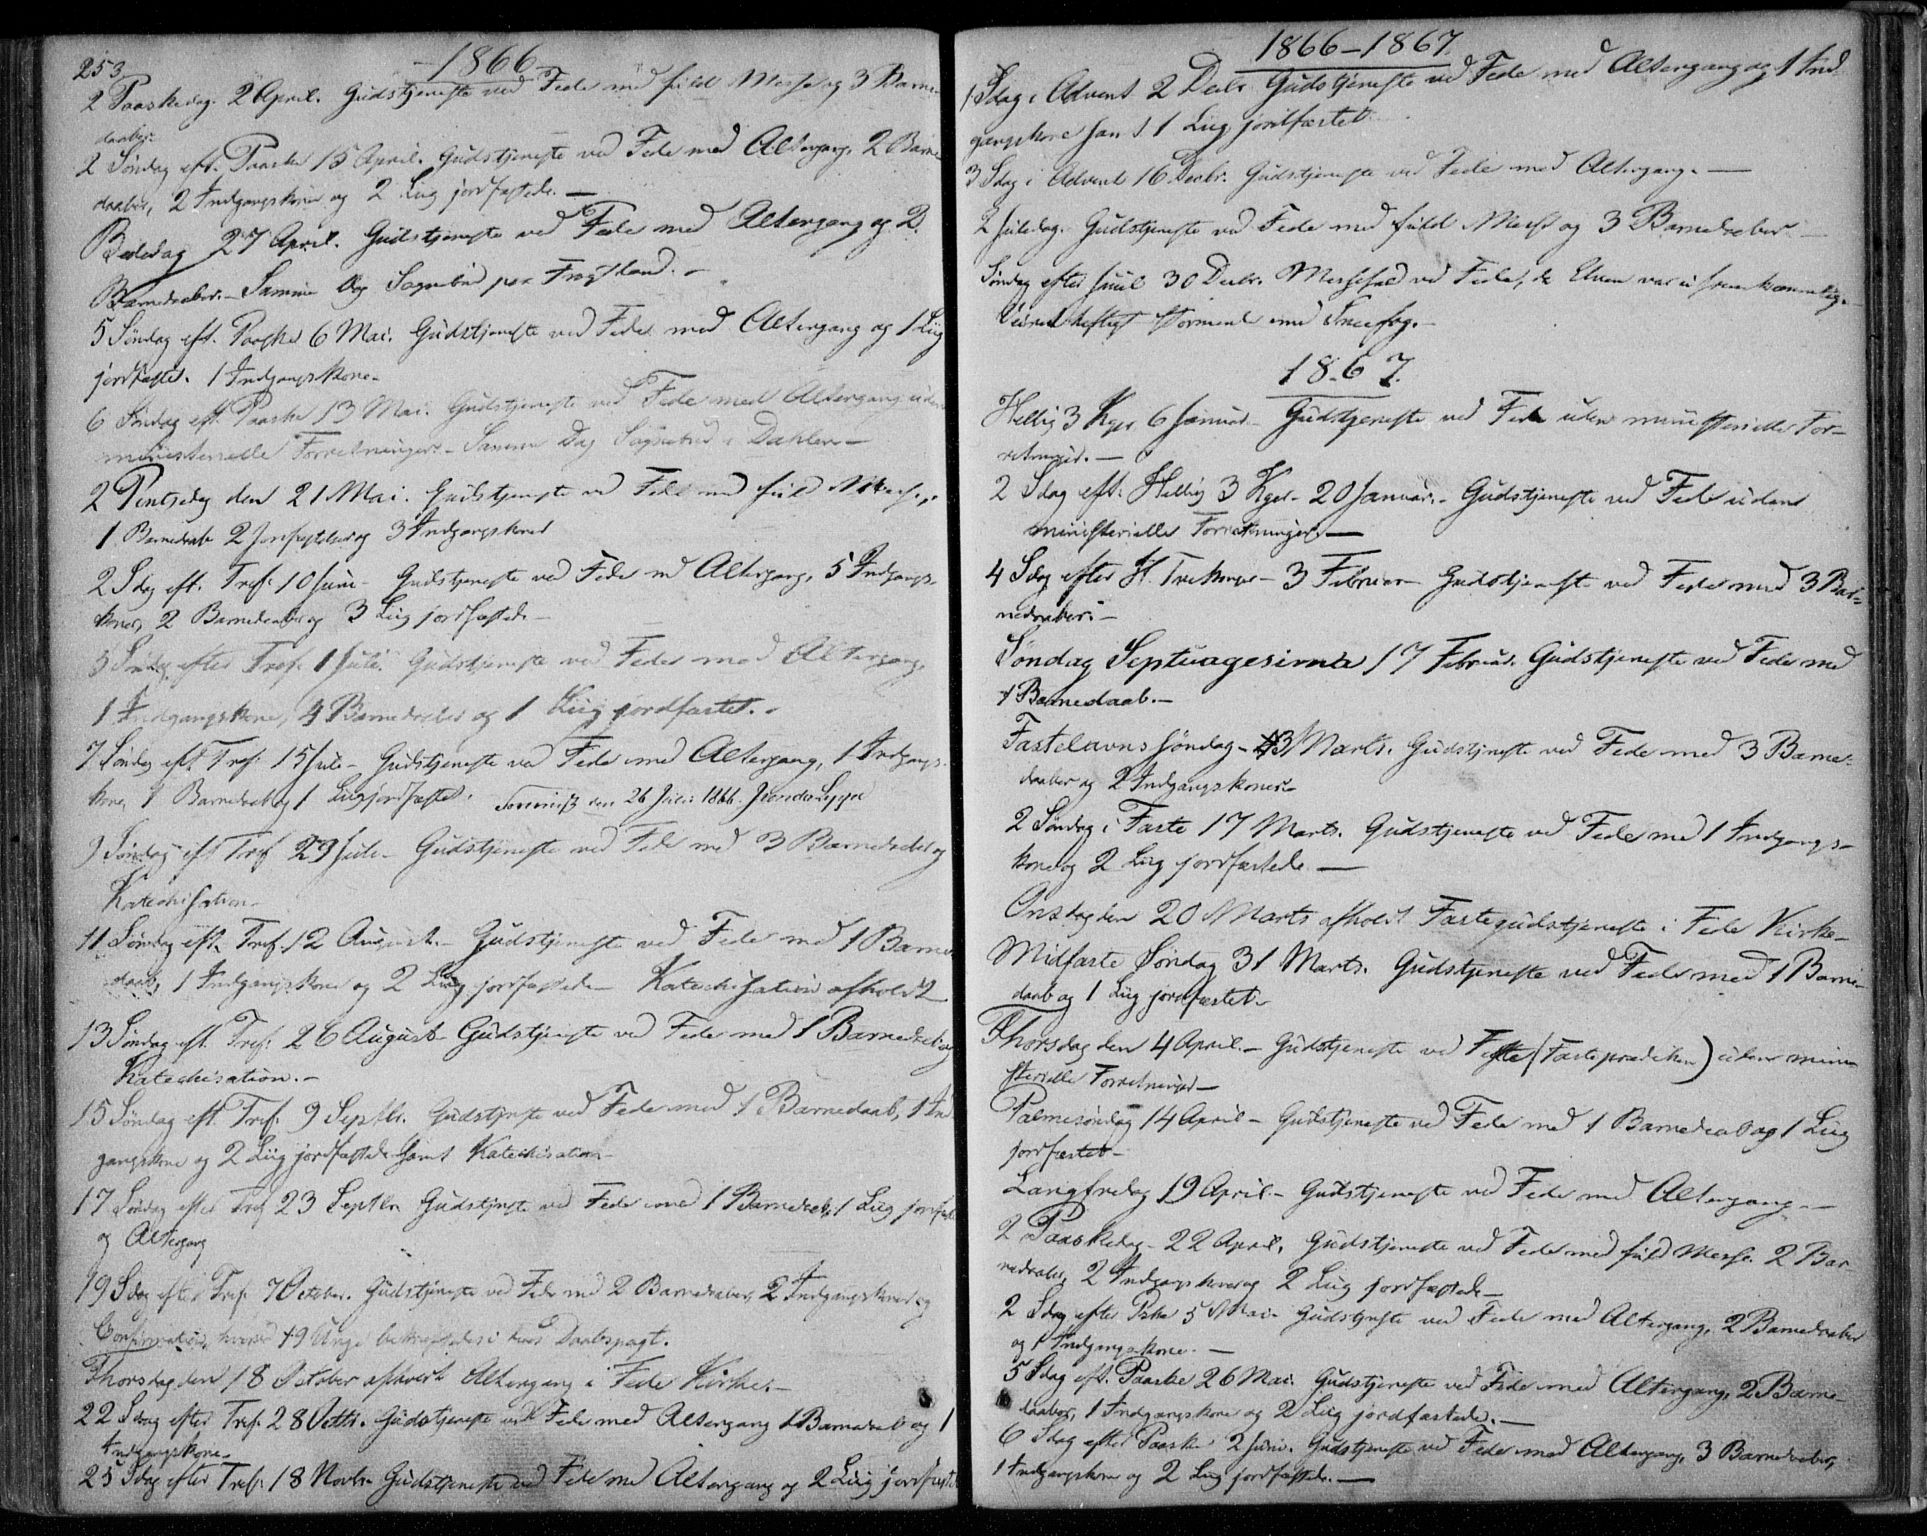 253
1866
2 Paaskedag 2 April. Gudstjeneste ved Fede med fuld Messe og 3 Barne-
daaber.
2 Søndag eft. Paaske 15 April. Gudstjeneste ved Fede med Altergang, 2 Barne
daaber, 2 Indgangskoner og 2 Liig jordfæstede. —
Bededag 27 April. Gudstjeneste ved Fede med Altergang og 2
Barnedaaber. – Samme Dag Sognebud paa
5 Søndag eft. Paaske 6 Mai. Gudstjeneste ved Fede med Altergang og 1 Liig
jordfæstet. 1 Indgangskone –
6 Søndag eft. Paaske 13 Mai. Gudstjeneste ved Fede med Altergang uden
ministerielle Forretninger – Samme Dag Sognebud i Dahlen –
2 Pintsedag den 21 Mai. Gudstjeneste ved Fede med fuld Messe,
1 Barnedaab 2 Jordfæstelser og 3 Indgangskoner
2 Sdag eft. Tref. 10 Juni – Gudstjeneste ved Fede m Altergang, 5 Indgangs-
koner, 2 Barnedaaber og 3 Liig jordfæstede –
5 Søndag efter Tref. 1 Juli. Gudstjeneste ved Fede med Altergang,
1 Indgangskone, 4 Barnedaaber og 1 Liig jordfæstet. –
7 Søndag eft Tref. 15 Juli – Gudstjeneste ved Fede med Altergang, 1 Indgangs-
kone, 1 Barnedaab og 1 Liig jordfæstet. den 26 Juli 1866.
9 Søndag eft Tref 29 Juli – Gudstjeneste ved Fede med 3 Barnedaaber og
Katechisation –
11 Søndag eft. Tref. 12 August. – Gudstjeneste ved Fede med 1 Barne
daab, 1 Indgangskone og 2 Liig jordfæstede – Katechisation afholdt
13 Søndag eft. Tref. 26 August – Gudstjeneste ved Fede med 1 Barnedaab og
Katechisation. –
15 Søndag eft. Tref. 9 Septbr. Gudstjeneste ved Fede med 1 Barnedaab, 1 Ind
gangskone og 2 Liig jordfæstede samt Katechisation –
17 Søndag efter Tref 23 Septbr Gudstjeneste ved Fede med 1 Barnedaab, 1 Liig jordfæstet
og Altergang
19 Sdag efter Tref. 7 October. Gudstjeneste ved Fede med 2 Barnedaaber, 2 Indgangskoner og
Confirmation, hvorved 19 Unge bekræftedes i deres Daabspagt.
Thorsdag den 18 October afholdt Altergang i Fede Kirke. –
22 Sdag efter Tref. 28 Octbr. Gudstjeneste ved Fede med Altergang 1 Barnedaab og 1
Indgangskone –
25 Sdag efter Tref. 18 Novbr. Gudstjeneste ved Fede med Altergang og 2 Liig jordfæstede
1866 – 1867
1 Sdag i Advent 2 Decbr. Gudstjeneste ved Fede med Altergang og 1 Ind-
gangskone samt 1 Liig jordfæstet
3 Sdag i Advent 16 Decbr. Gudstjeneste ved Fede med Altergang. —
2 Juledag. Gudstjeneste ved Fede med fuld Messe og 3 Barnedaaber –
Søndag efter Juul 30 Decbr. Messefald ved Fede, da Elven var ufremkommelig.
Veiret heftigt stormende med Sneefog. –
1867.
Hellig 3 Kger 6 Januar – Gudstjeneste ved Fede uden ministerielle For-
retninger. –
2 Sdag eft. Hellig 3 Kger – 20 Januar. – Gudstjeneste ved Fede uden
ministerielle Forretninger. —
4 Sdag efter H. Trekonger – 3 Februar – Gudstjeneste ved Fede med 3 Bar-
nedaaber. –
Søndag Septuagesima 17 Februar. Gudstjeneste ved Fede med
1 Barnedaab. –
Fastelavns Søndag – 3 Marts. Gudstjeneste ved Fede med 3 Barne-
daaber og 2 Indgangskoner. –
2 Søndag i Faste 17 Marts. Gudstjeneste ved Fede med 1 Indgangs-
kone og 2 Liig jordfæstede. —
Onsdag den 20 Marts afholdt Fastegudstjeneste i Fede Kirke –
Midfaste Søndag 31 Marts. Gudstjeneste ved Fede med 1 Barne-
daab og 1 Liig jordfæstet –
Thorsdag den 4 April. – Gudstjeneste ved Fede (Fasteprædiken) uden mini-
sterielle Forretninger –
Palmesøndag 14 April – Gudstjeneste ved Fede med 1 Barnedaab og 1 Liig
jordfæstet –
Langfredag 19 April. – Gudstjeneste ved Fede med Altergang –
2 Paaskedag – 22 April, Gudstjeneste ved Fede med fuld Messe. 2 Bar
nedaaber, 2 Indgangskoner og 2 Liig jordfæstede –
2 Sdag efter Paske 5 Mai – Gudstjeneste ved Fede med Altergang, 2 Barnedaaber
og 1 Indgangskone. –
5 Sdag eft. Paaske 26 Mai. Gudstjeneste ved Fede med Altergang, 2 Barne-
daaber, 1 Indgangskone og 2 Liig jordfæstede. —
6 Sdag efter Paaske 2 Juni. Gudstjeneste ved Fede med Altergang, 3 Barnedaaber,
1 Indgangskone og 2 Liig jordfæstede. —